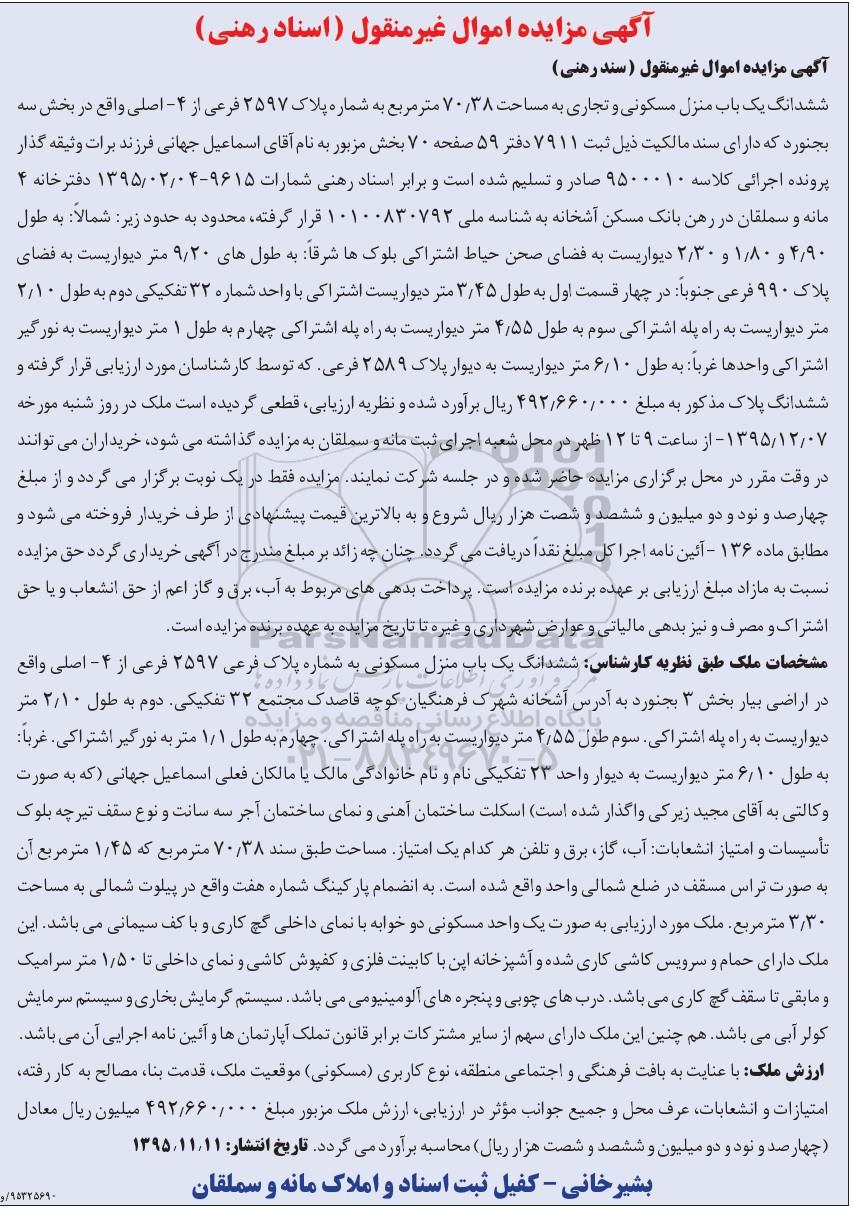 آگهی مزایده اموال غیرمنقول (اسناد رهنی)
آگهی مزایده اموال غیرمنقول (سند رهنی)
ششدانگ یک باب منزل مسکونی و تجاری به مساحت ۷۰/۳۸ مترمربع به شماره پلاک ۲۵۹۷ فرعی از ۴- اصلی واقع در بخش سه
بجنورد که دارای سند مالکیت ذیل ثبت ۷۹۱۱ دفتر ۵۹ صفحه ۷۰ بخش مزبور به نام آقای اسماعیل جهانی فرزند برات وثیقه گذار
پرونده اجرائی کلاسه ۹۵۰۰۰۱۰ صادر و تسلیم شده است و برابر اسناد رهنی شمارات ۹۶۱۵-۱۳۹۵/۰۲/۰۴ دفترخانه ۴
مانه و سملقان در رهن بانک مسکن آشخانه به شناسه ملی ۱۰۱۰۰۸۳۰۷۹۲ قرار گرفته، محدود به حدود زیر: شمالاً: به طول
۴/۹۰ و ۱/۸۰ و ۲/۳۰ دیواریست به فضای صحن حیاط اشتراکی بلوک ها شرقاً: به طول های ۹/۲۰ متر دیواریست به فضای
پلاک ۹۹۰ فرعی جنوباً: در چهار قسمت اول به طول ۳/۴۵ متر دیواریست اشتراکی با واحد شماره ۳۲ تفکیکی دوم به طول ۲/۱۰
متر دیواریست به راه پله اشتراکی سوم به طول ۴/۵۵ متر دیواریست به راه پله اشتراکی چهارم به طول ۱ متر دیواریست به نورگیر
اشتراکی واحدها غرباً: به طول ۶/۱۰ متر دیواریست به دیوار پلاک ۲۵۸۹ فرعی. که توسط کارشناسان مورد ارزیابی قرار گرفته و
ششدانگ پلاک مذکور به مبلغ ۴۹۲/۶۶۰/۰۰۰ ریال برآورد شده و نظریه ارزیابی، قطعی گردیده است ملک در روز شنبه مورخه
۱۳۹۵/۱۲/۰۷- از ساعت ۹ تا ۱۲ ظهر در محل شعبه اجرای ثبت مانه و سملقان به مزایده گذاشته می شود، خریداران می توانند
در وقت مقرر در محل برگزاری مزایده حاضر شده و در جلسه شرکت نمایند. مزایده فقط در یک نوبت برگزار می گردد و از مبلغ
چهارصد و نود و دو میلیون و ششصد و شصت هزار ریال شروع و به بالاترین قیمت پیشنهادی از طرف خریدار فروخته می شود و
مطابق ماده ۱۳۶ - آئین نامه اجرا کل مبلغ نقداً دریافت می گردد. چنان چه زائد بر مبلغ مندرج در آگهی خریداری گردد حق مزایده
نسبت به مازاد مبلغ ارزیابی بر عهده برنده مزایده است. پرداخت بدهی های مربوط به آب، برق و گاز اعم از حق انشعاب و یا حق
اشتراک و مصرف و نیز بدهی مالیاتی و عوارض شهرداری و غیره تا تاریخ مزایده به عهده برنده مزایده است.
مشخصات ملک طبق نظریه کارشناس: ششدانگ یک باب منزل مسکونی به شماره پلاک فرعی ۲۵۹۷ فرعی از ۴- اصلی واقع
در اراضی بیار بخش ۳ بجنورد به آدرس آشخانه شهرک فرهنگیان کوچه قاصدک مجتمع ۳۲ تفکیکی. دوم به طول ۲/۱۰ متر
دیواریست به راه پله اشتراکی. سوم طول ۴/۵۵ متر دیواریست به راه پله اشتراکی. چهارم به طول ۱/۱ متر به نورگیر اشتراکی. غرباً:
به طول ۶/۱۰ متر دیواریست به دیوار واحد ۲۳ تفکیکی نام و نام خانوادگی مالک یا مالکان فعلی اسماعیل جهانی (که به صورت
وکالتی به آقای مجید زیرکی واگذار شده است) اسکلت ساختمان آهنی و نمای ساختمان آجر سه سانت و نوع سقف تیرچه بلوک
تأسیسات و امتیاز انشعابات: آب، گاز، برق و تلفن هر کدام یک امتیاز. مساحت طبق سند ۷۰/۳۸ مترمربع که ۱/۴۵ مترمربع آن
به صورت تراس مسقف در ضلع شمالی واحد واقع شده است. به انضمام پارکینگ شماره هفت واقع در پیلوت شمالی به مساحت
۳/۳۰ مترمربع. ملک مورد ارزیابی به صورت یک واحد مسکونی دو خوابه با نمای داخلی گچ کاری و با کف سیمانی می باشد. این
ملک دارای حمام و سرویس کاشی کاری شده و آشپزخانه اپن با کابینت فلزی و کفپوش کاشی و نمای داخلی تا ۱/۵۰ متر سرامیک
و مابقی تا سقف گچ کاری می باشد. درب های چوبی و پنجره های آلومینیومی می باشد. سیستم گرمایش بخاری و سیستم سرمایش
کولر آبی می باشد. هم چنین این ملک دارای سهم از سایر مشترکات برابر قانون تملک آپارتمان ها و آئین نامه اجرایی آن می باشد.
ارزش ملک: با عنایت به بافت فرهنگی و اجتماعی منطقه، نوع کاربری (مسکونی) موقعیت ملک، قدمت بنا، مصالح به کار رفته،
امتیازات و انشعابات، عرف محل و جمیع جوانب مؤثر در ارزیابی، ارزش ملک مزبور مبلغ ۴۹۲/۶۶۰/۰۰۰ میلیون ریال معادل
(چهارصد و نود و دو میلیون و ششصد و شصت هزار ریال) محاسبه برآورد می گردد. تاریخ انتشار: ۱۳۹۵/۱۱/۱۱
بشیرخانی - کفیل ثبت اسناد و املاک مانه و سملقان
۹۵۳۲۵۶۹۰/و
ParsNamadData
پایگاه اطلاع رسانی مناقصه و مزایده
۰۲۱-۸۸۳۴۹۶۷۰-۵